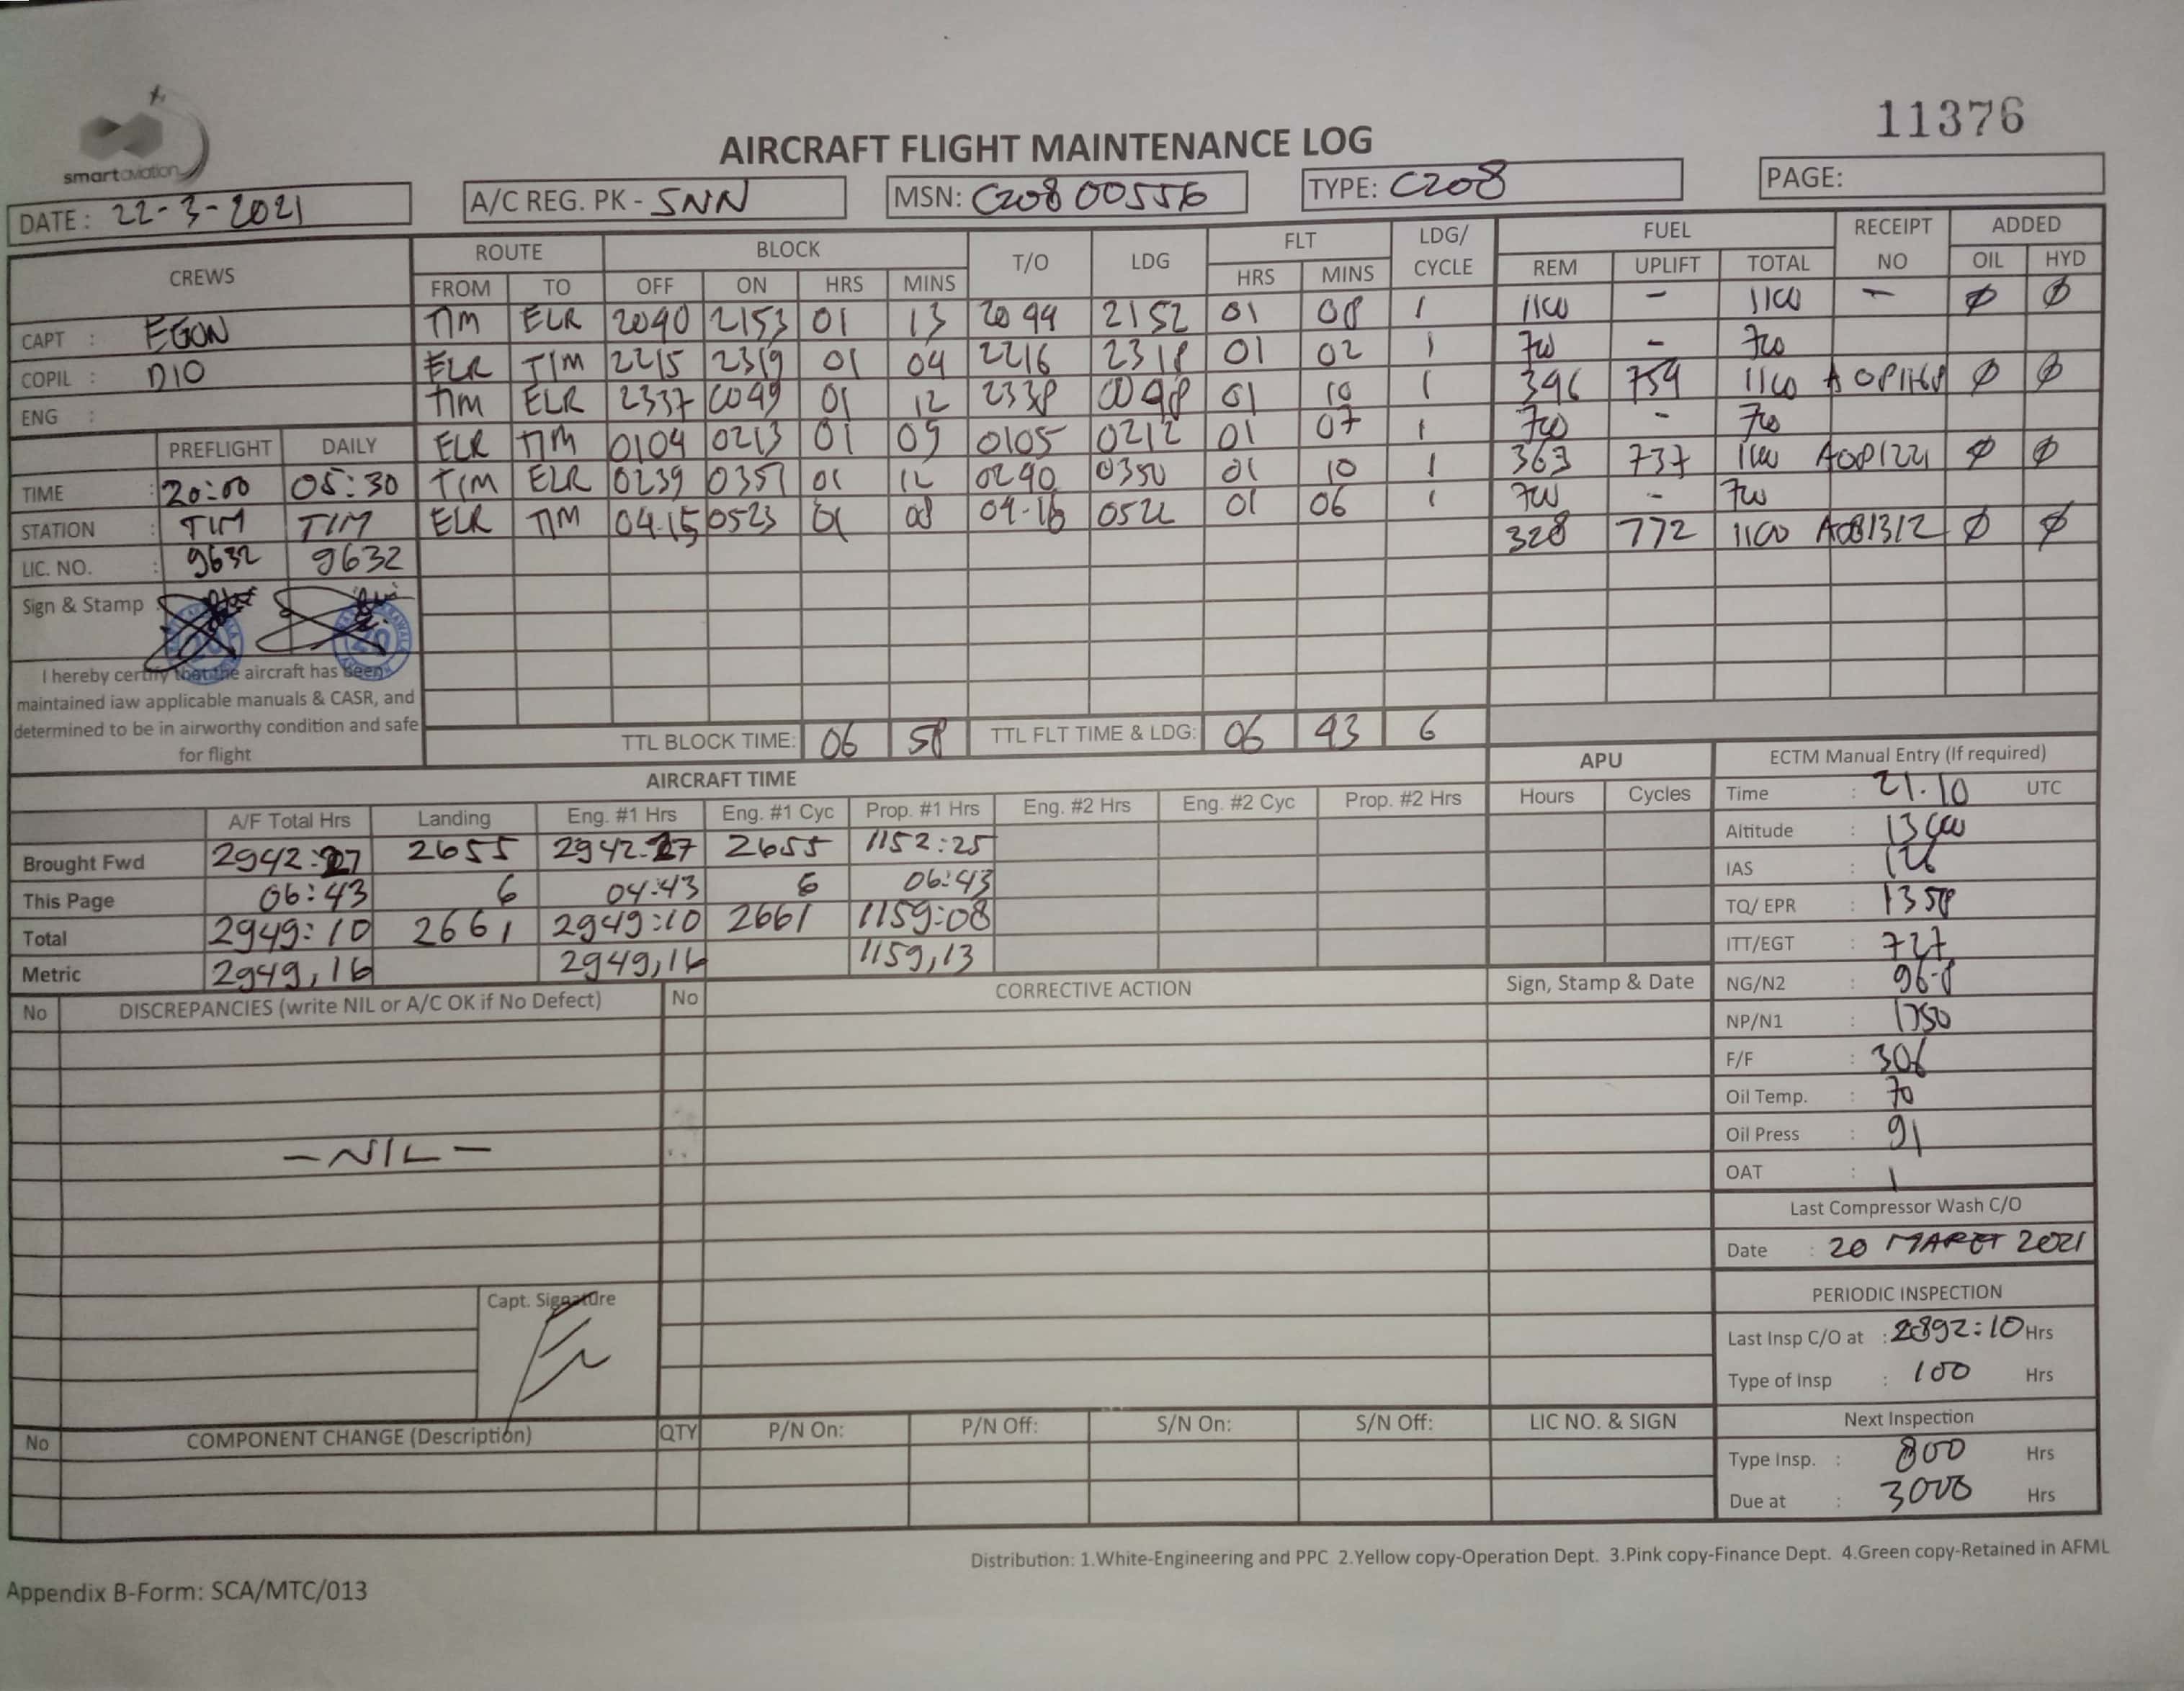 11376
smartaviation
AIRCRAFT FLIGHT MAINTENANCE LOG
DATE : 22-3-2021 A/C REG. PK - SNN MSN: C208 00556 TYPE: C208 PAGE:
CREWS ROUTE BLOCK T/O LDG FLT LDG/ CYCLE FUEL RECEIPT NO ADDED
FROM TO OFF ON HRS MINS HRS MINS REM UPLIFT TOTAL OIL HYD
CAPT : EGON
COPIL : DIO
ENG :
TIM ELR 2040 2153 01 13 2044 2152 01 08 1 1100 - 1100 - Ø Ø
ELR TIM 2215 2319 01 04 2216 2318 01 02 1 720 - 720
TIM ELR 2337 0049 01 12 2338 0048 01 10 1 396 754 1100 Ø Ø
ELR TIM 0104 0213 01 09 0105 0212 01 07 1 720 - 720
TIM ELR 0239 0351 01 12 0240 0350 01 10 1 363 737 1100 A081221 Ø Ø
ELR TIM 04.15 0523 01 08 04.16 0522 01 06 1 720 - 720
328 772 1100 A081312 Ø Ø
PREFLIGHT DAILY
TIME : 20:00 05:30
STATION : TIM TIM
LIC. NO. : 9632 9632
Sign & Stamp :
I hereby certify that the aircraft has been
maintained iaw applicable manuals & CASR, and
determined to be in airworthy condition and safe
for flight
TTL BLOCK TIME: 06 58 TTL FLT TIME & LDG: 06 43 6
AIRCRAFT TIME APU
A/F Total Hrs Landing Eng. #1 Hrs Eng. #1 Cyc Prop. #1 Hrs Eng. #2 Hrs Eng. #2 Cyc Prop. #2 Hrs Hours Cycles
Brought Fwd 2942:27 2655 2942:27 2655 1152:25
This Page 06:43 6 04:43 6 06:43
Total 2949:10 2661 2949:10 2661 1159:08
Metric 2949,16 2949,16 1159,13
ECTM Manual Entry (If required)
Time : 21.10 UTC
Altitude : 13000
IAS : 126
TQ/ EPR : 1358
ITT/EGT : 727
NG/N2 : 96.8
NP/N1 : 1750
F/F : 306
Oil Temp. : 70
Oil Press : 91
OAT : 1
Last Compressor Wash C/O
Date : 20 MARET 2021
PERIODIC INSPECTION
Last Insp C/O at : 2892:10 Hrs
Type of Insp : 100 Hrs
Next Inspection
Type Insp. : 800 Hrs
Due at : 3000 Hrs
No DISCREPANCIES (write NIL or A/C OK if No Defect) No CORRECTIVE ACTION Sign, Stamp & Date
- NIL -
Capt. Signature
No COMPONENT CHANGE (Description) QTY P/N On: P/N Off: S/N On: S/N Off: LIC NO. & SIGN
Distribution: 1.White-Engineering and PPC 2.Yellow copy-Operation Dept. 3.Pink copy-Finance Dept. 4.Green copy-Retained in AFML
Appendix B-Form: SCA/MTC/013